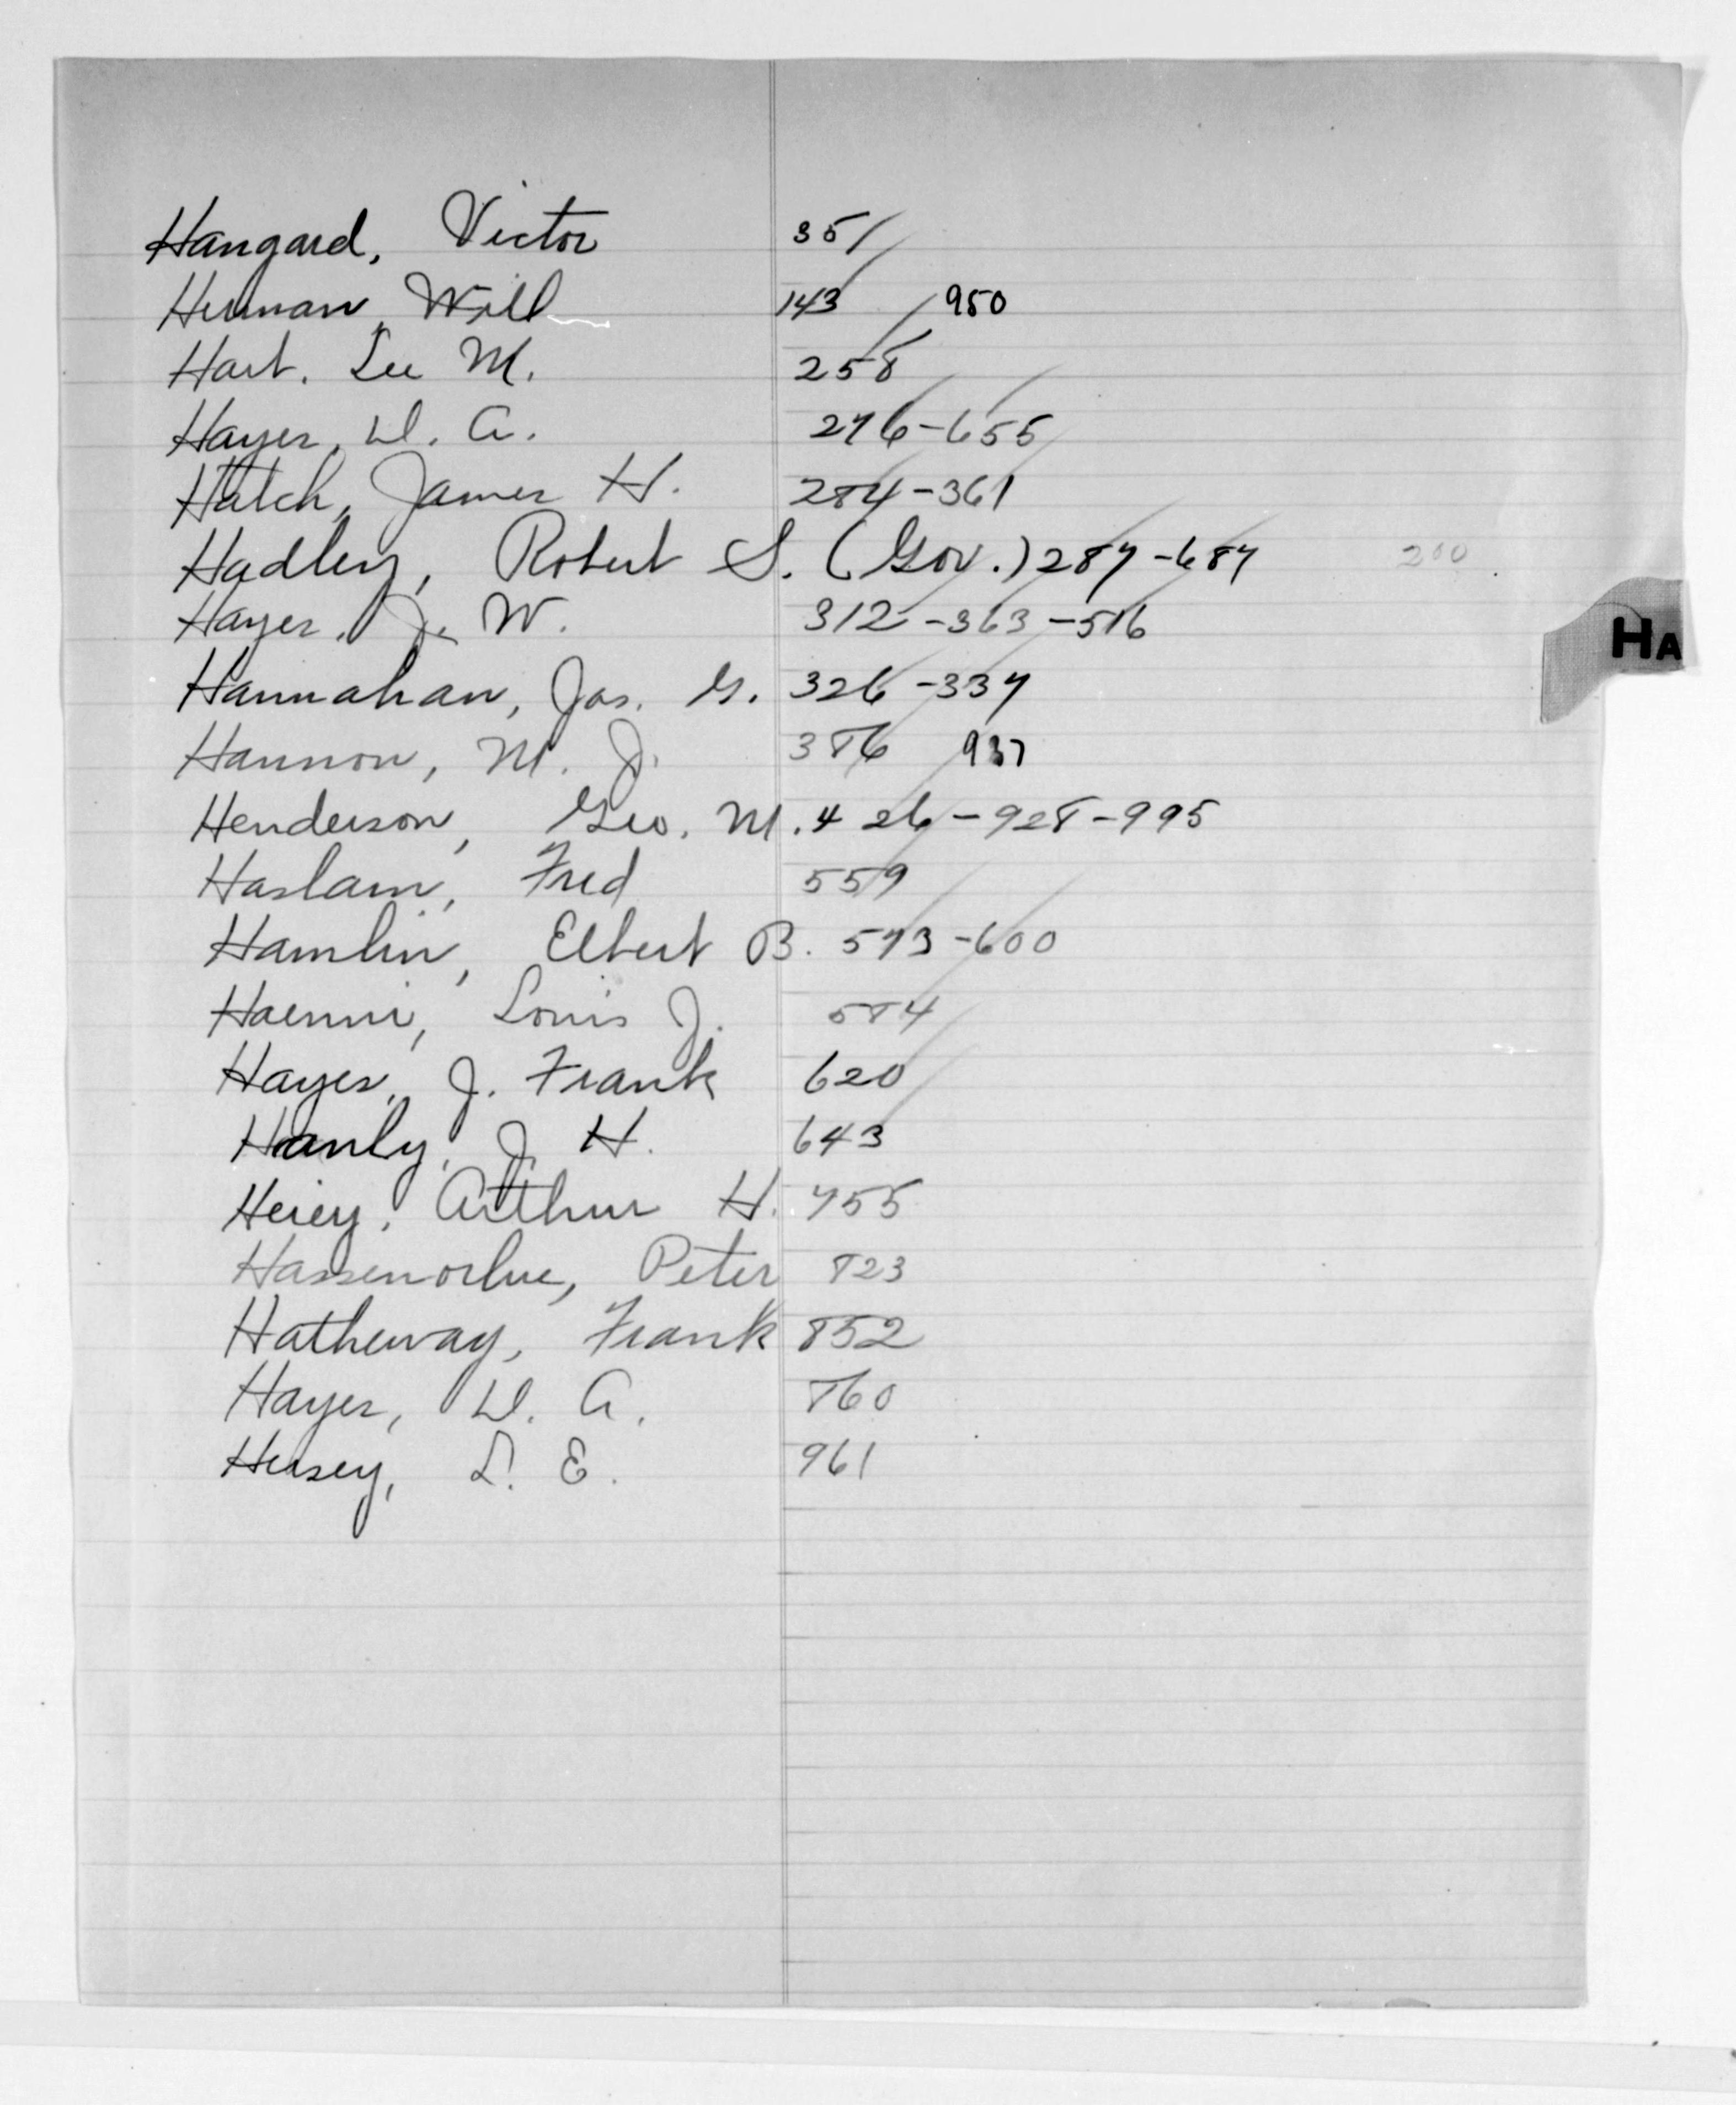 Hangard, Victor 351
Herman, Will 143 950
Hart, Lee M. 258
Hayes, D. A. 276-655
Hatch, James H. 284-361
Hadley, Robert S. (Gov.) 287-687 200
HA
Hayes, J. W. 312-363-516
Hannahan, Jas. G. 326-337
Hannon, M. J. 386 937
Henderson, Geo. M. 426-928-995
Haslam, Fred 559
Hamlin, Elbert B. 573-600
Haenni, Louis J. 584
Hayes, J. Frank 620
Hanly, J. H. 643
Arthur H. 755
Peter 823
Hatheway, Frank 852
Hayes, D. A. 860
Hersey, L. E. 961